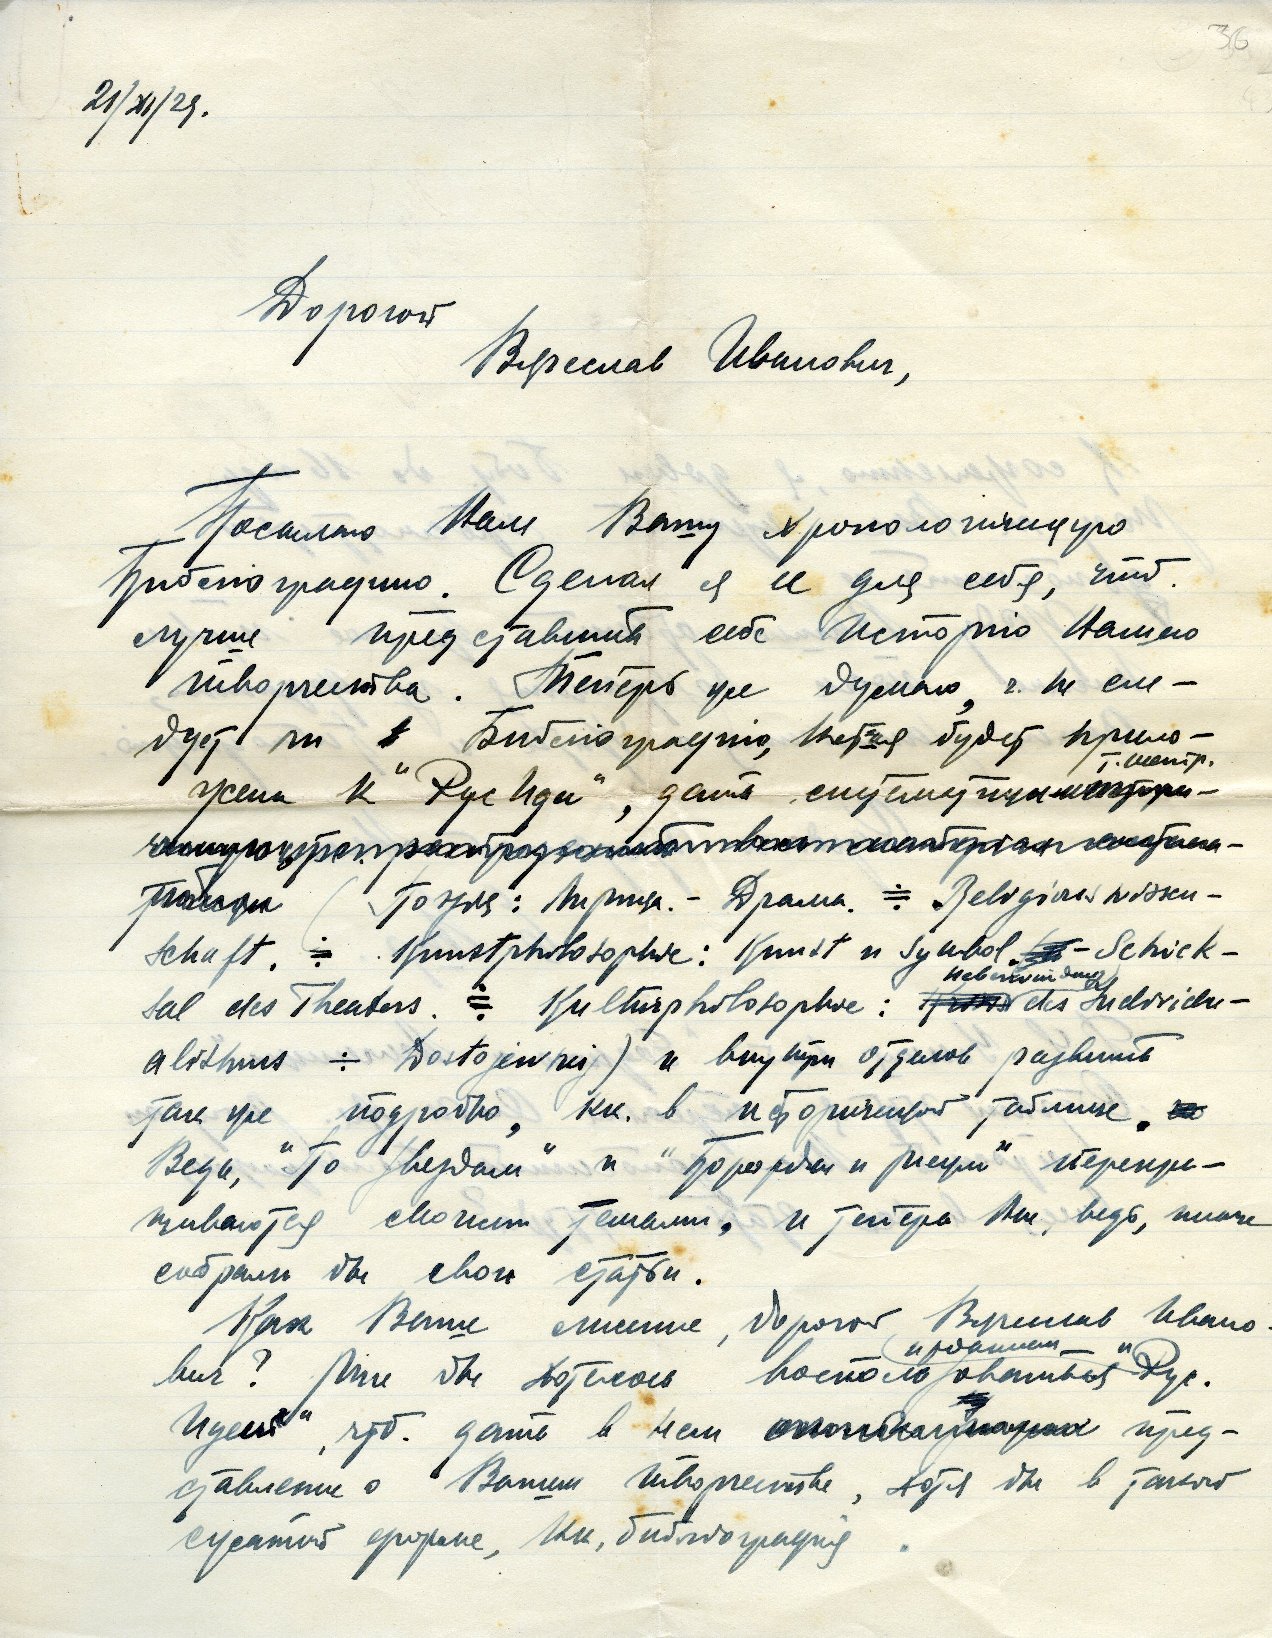 36
21/XI/29.
Дорогой
Вячеслав Иванович,
Посылаю Вам Вашу хронологическую
Библіографию. Сделал я ее для себя, чтоб.
лучше представить себе Исторію Вашего
творчества. Теперь же думаю, ч. не сле-
дует ли в Библіографію, которая будет прило-
жена к "Рус Идеи", дать систематическую
(Поэзия: Лирика. - Драма. ÷ Religionswissen-
schaft. ÷ Kunstphilosophie: Kunst u Symbol. - Schick-
sal des Theaters. ÷ Kulturphilosophie: Ueberwindung des Individu-
alismus ÷ Dostojewskij) и внутри отделов развить
так же подробно, кк. в исторической таблице.
Ведь, "По Звездам" и "Борозды и Межи" перекре-
щиваются своими темами, и теперь Вы, ведь, иначе
собрали бы свои статьи.
Как Ваше мнение, дорогой Вячеслав Ивано-
вич? Мне бы хотелось воспользоваться изданием "Рус.
Идеи", чтб. дать в нем пред-
ставление о Вашем творчестве, хотя бы в такой
сжатой форме, кк. библіографія.